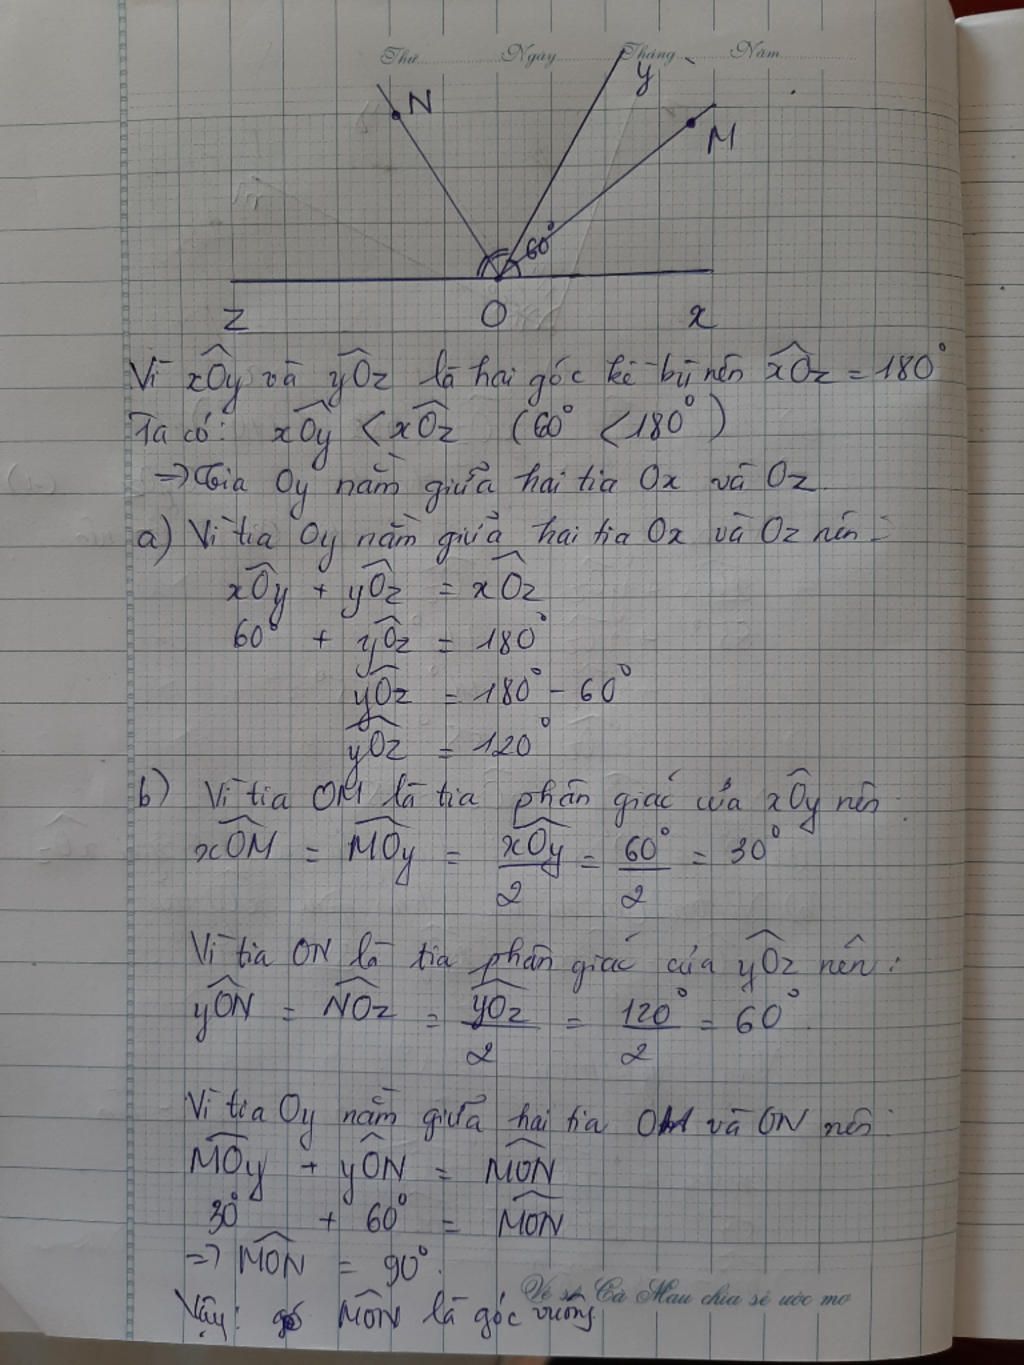 Thứ Ngày Tháng Năm
N
y
M
60°
z O x
Vì xÔy và yÔz là hai góc kề bù nên xÔz = 180°
Ta có: xÔy < xÔz (60° < 180°)
=> Tia Oy nằm giữa hai tia Ox và Oz.
a) Vì tia Oy nằm giữa hai tia Ox và Oz nên:
xÔy + yÔz = xÔz
60° + yÔz = 180°
yÔz = 180° - 60°
yÔz = 120°
b) Vì tia OM là tia phân giác của xÔy nên:
xÔM = MÔy = xÔy/2 = 60°/2 = 30°
Vì tia ON là tia phân giác của yÔz nên:
yÔN = NÔz = yÔz/2 = 120°/2 = 60°.
Vì tia Oy nằm giữa hai tia OM và ON nên:
MÔy + yÔN = MÔN
30° + 60° = MÔN
=> MÔN = 90°.
Vé số Cà Mau chia sẻ ước mơ
Vậy: MÔN là góc vuông.